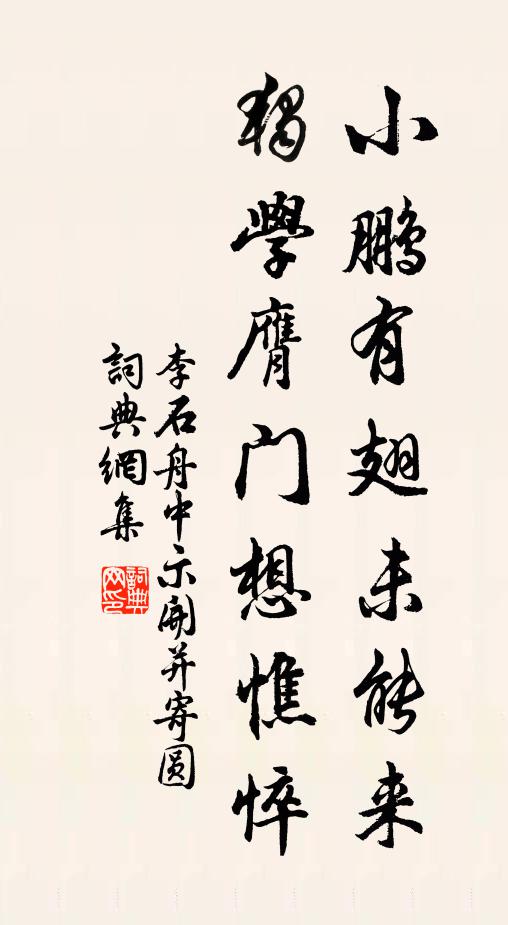 小鹏有翅未能来
獨學膺门想憔悴
李石舟中示開并寄圆
詞典網集
詞典